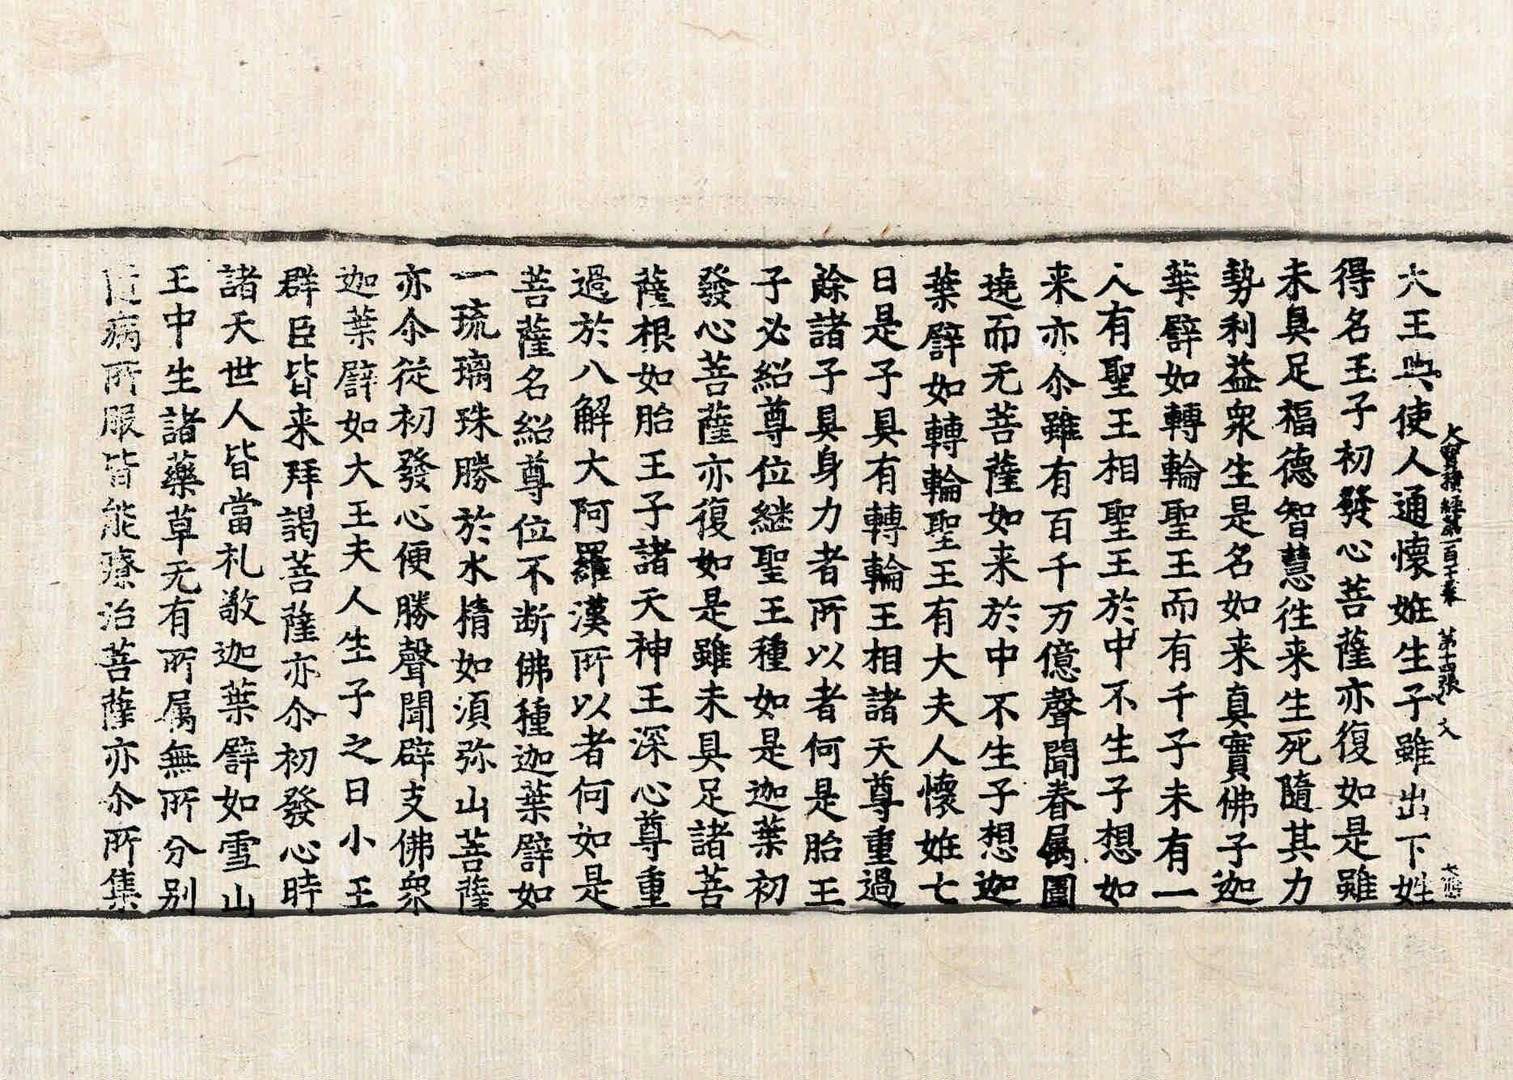 大王與使人通懷姙生子雖出下姓
大寶積經第一百十二卷 第十四張 文
得名王子初發心菩薩亦復如是雖
未具足福德智慧往来生死隨其力
勢利益衆生是名如来真實佛子迦
葉譬如轉輪聖王而有千子未有一
人有聖王相聖王於中不生子想如
来亦尒雖有百千万億聲聞眷属圍
遶而无菩薩如来於中不生子想迦
葉譬如轉輪聖王有大夫人懷姙七
日是子具有轉輪王相諸天尊重過
餘諸子具身力者所以者何是胎王
子必紹尊位継聖王種如是迦葉初
發心菩薩亦復如是雖未具足諸菩
薩根如胎王子諸天神王深心尊重
過於八解大阿羅漢所以者何如是
菩薩名紹尊位不断佛種迦葉譬如
一琉璃珠勝於水精如須弥山菩薩
亦尒従初發心便勝聲聞辟支佛衆
迦葉譬如大王夫人生子之日小王
群臣皆来拜謁菩薩亦尒初發心時
諸天世人皆當礼敬迦葉譬如雪山
王中生諸藥草无有所属無所分别
隨病所服皆能療治菩薩亦尒所集